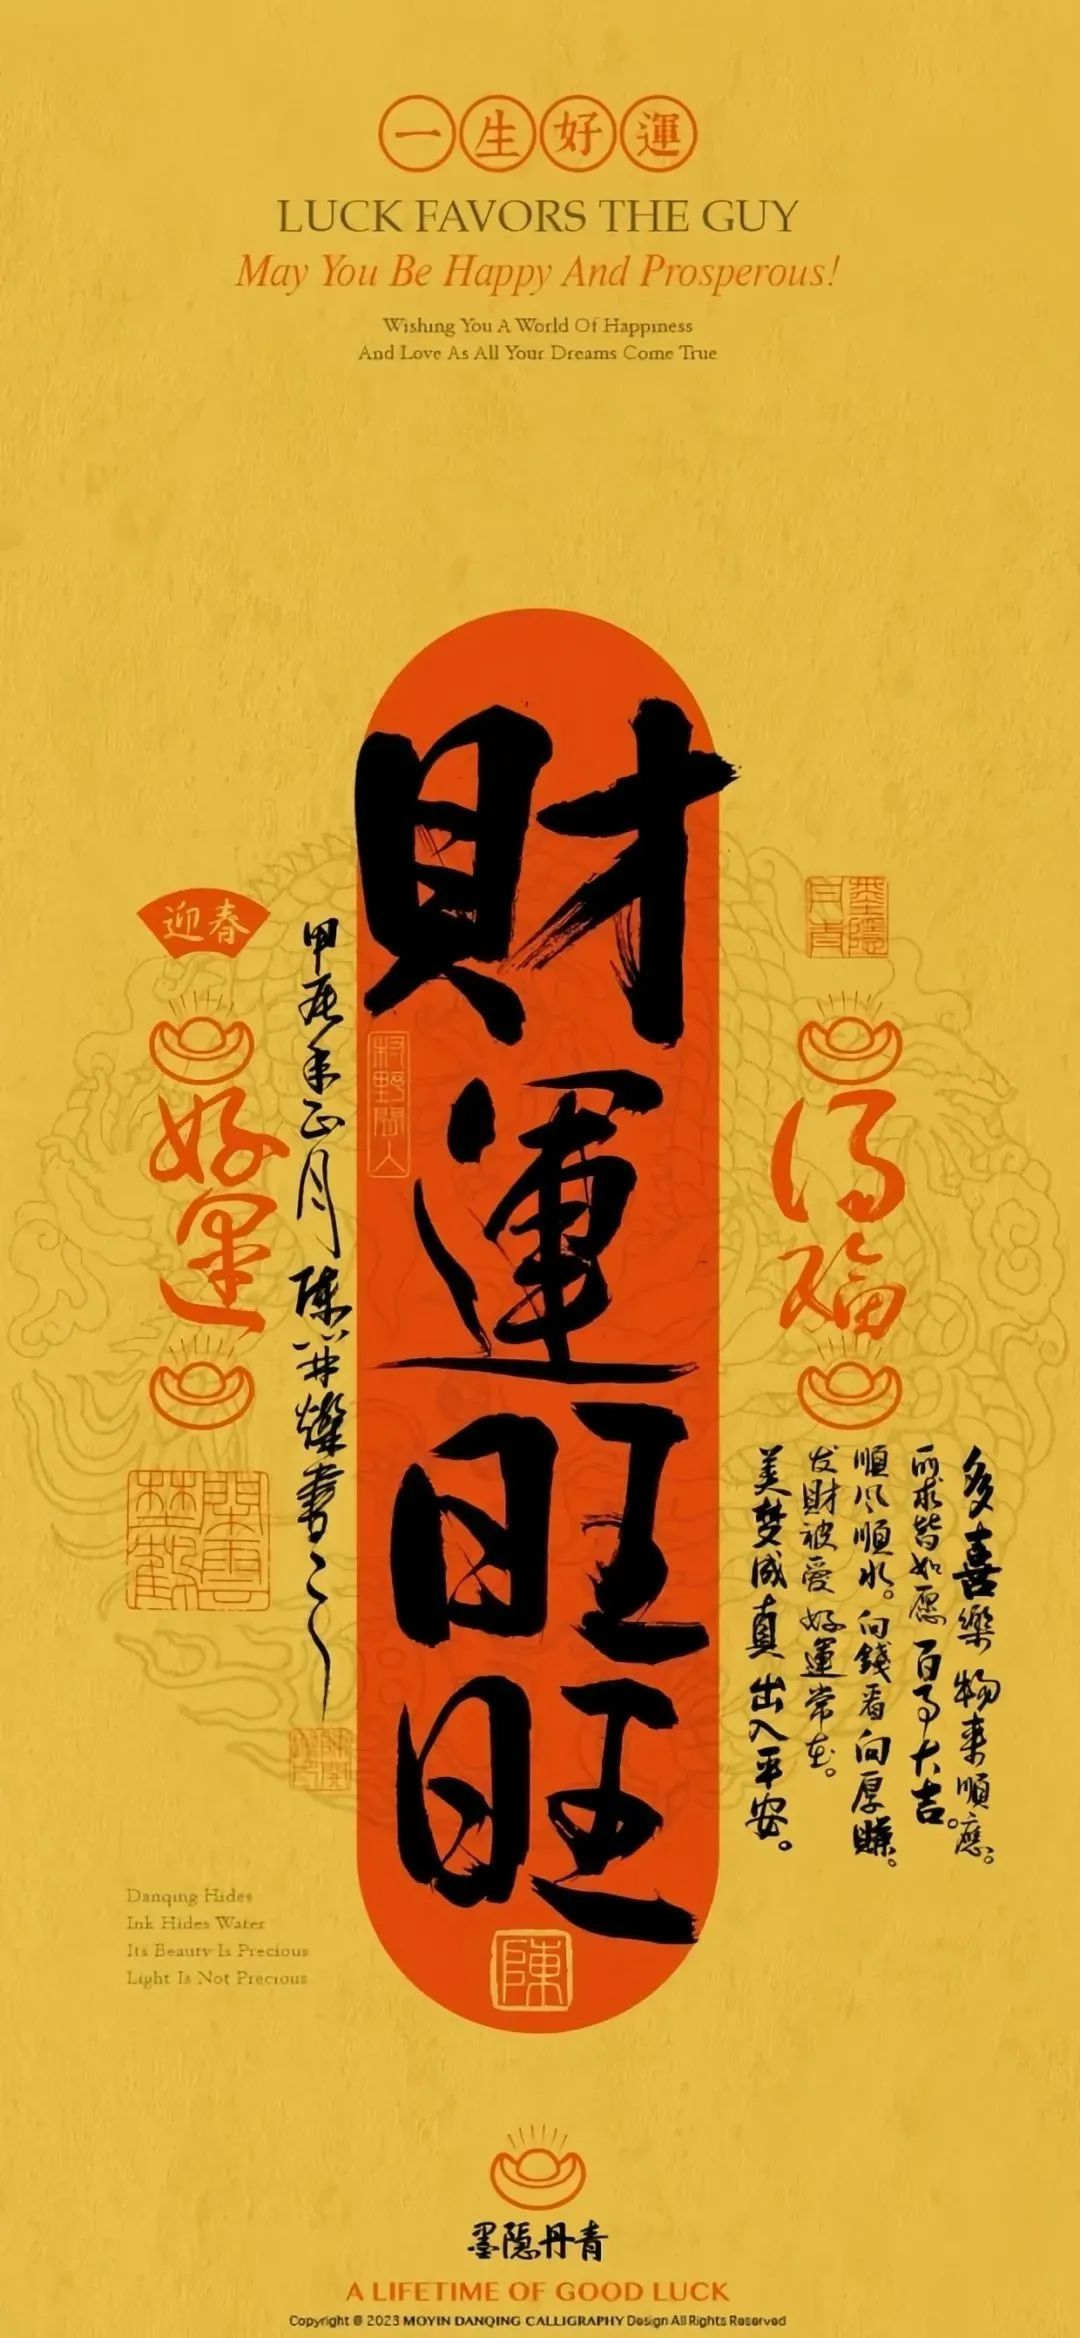 一生好運
LUCK FAVORS THE GUY
May You Be Happy And Prosperous!
Wishing You A World Of Happiness
And Love As All Your Dreams Come True
財運旺旺
墨隱丹青
得福
多喜樂 物来順應。
所求皆如愿 百事大吉。
順风順水。向錢看向厚賺。
发财被爱 好運常在。
美梦成真 出入平安。
村野閒人
迎春
好運
甲辰年正月陳羿燦書
陳
Danqing Hides
Ink Hides Water
Its Beauty Is Precious
Light Is Not Precious
墨隱丹青
A LIFETIME OF GOOD LUCK
Copyright @ 2023 MOYIN DANQING CALLIGRAPHY Design All Rights Reserved